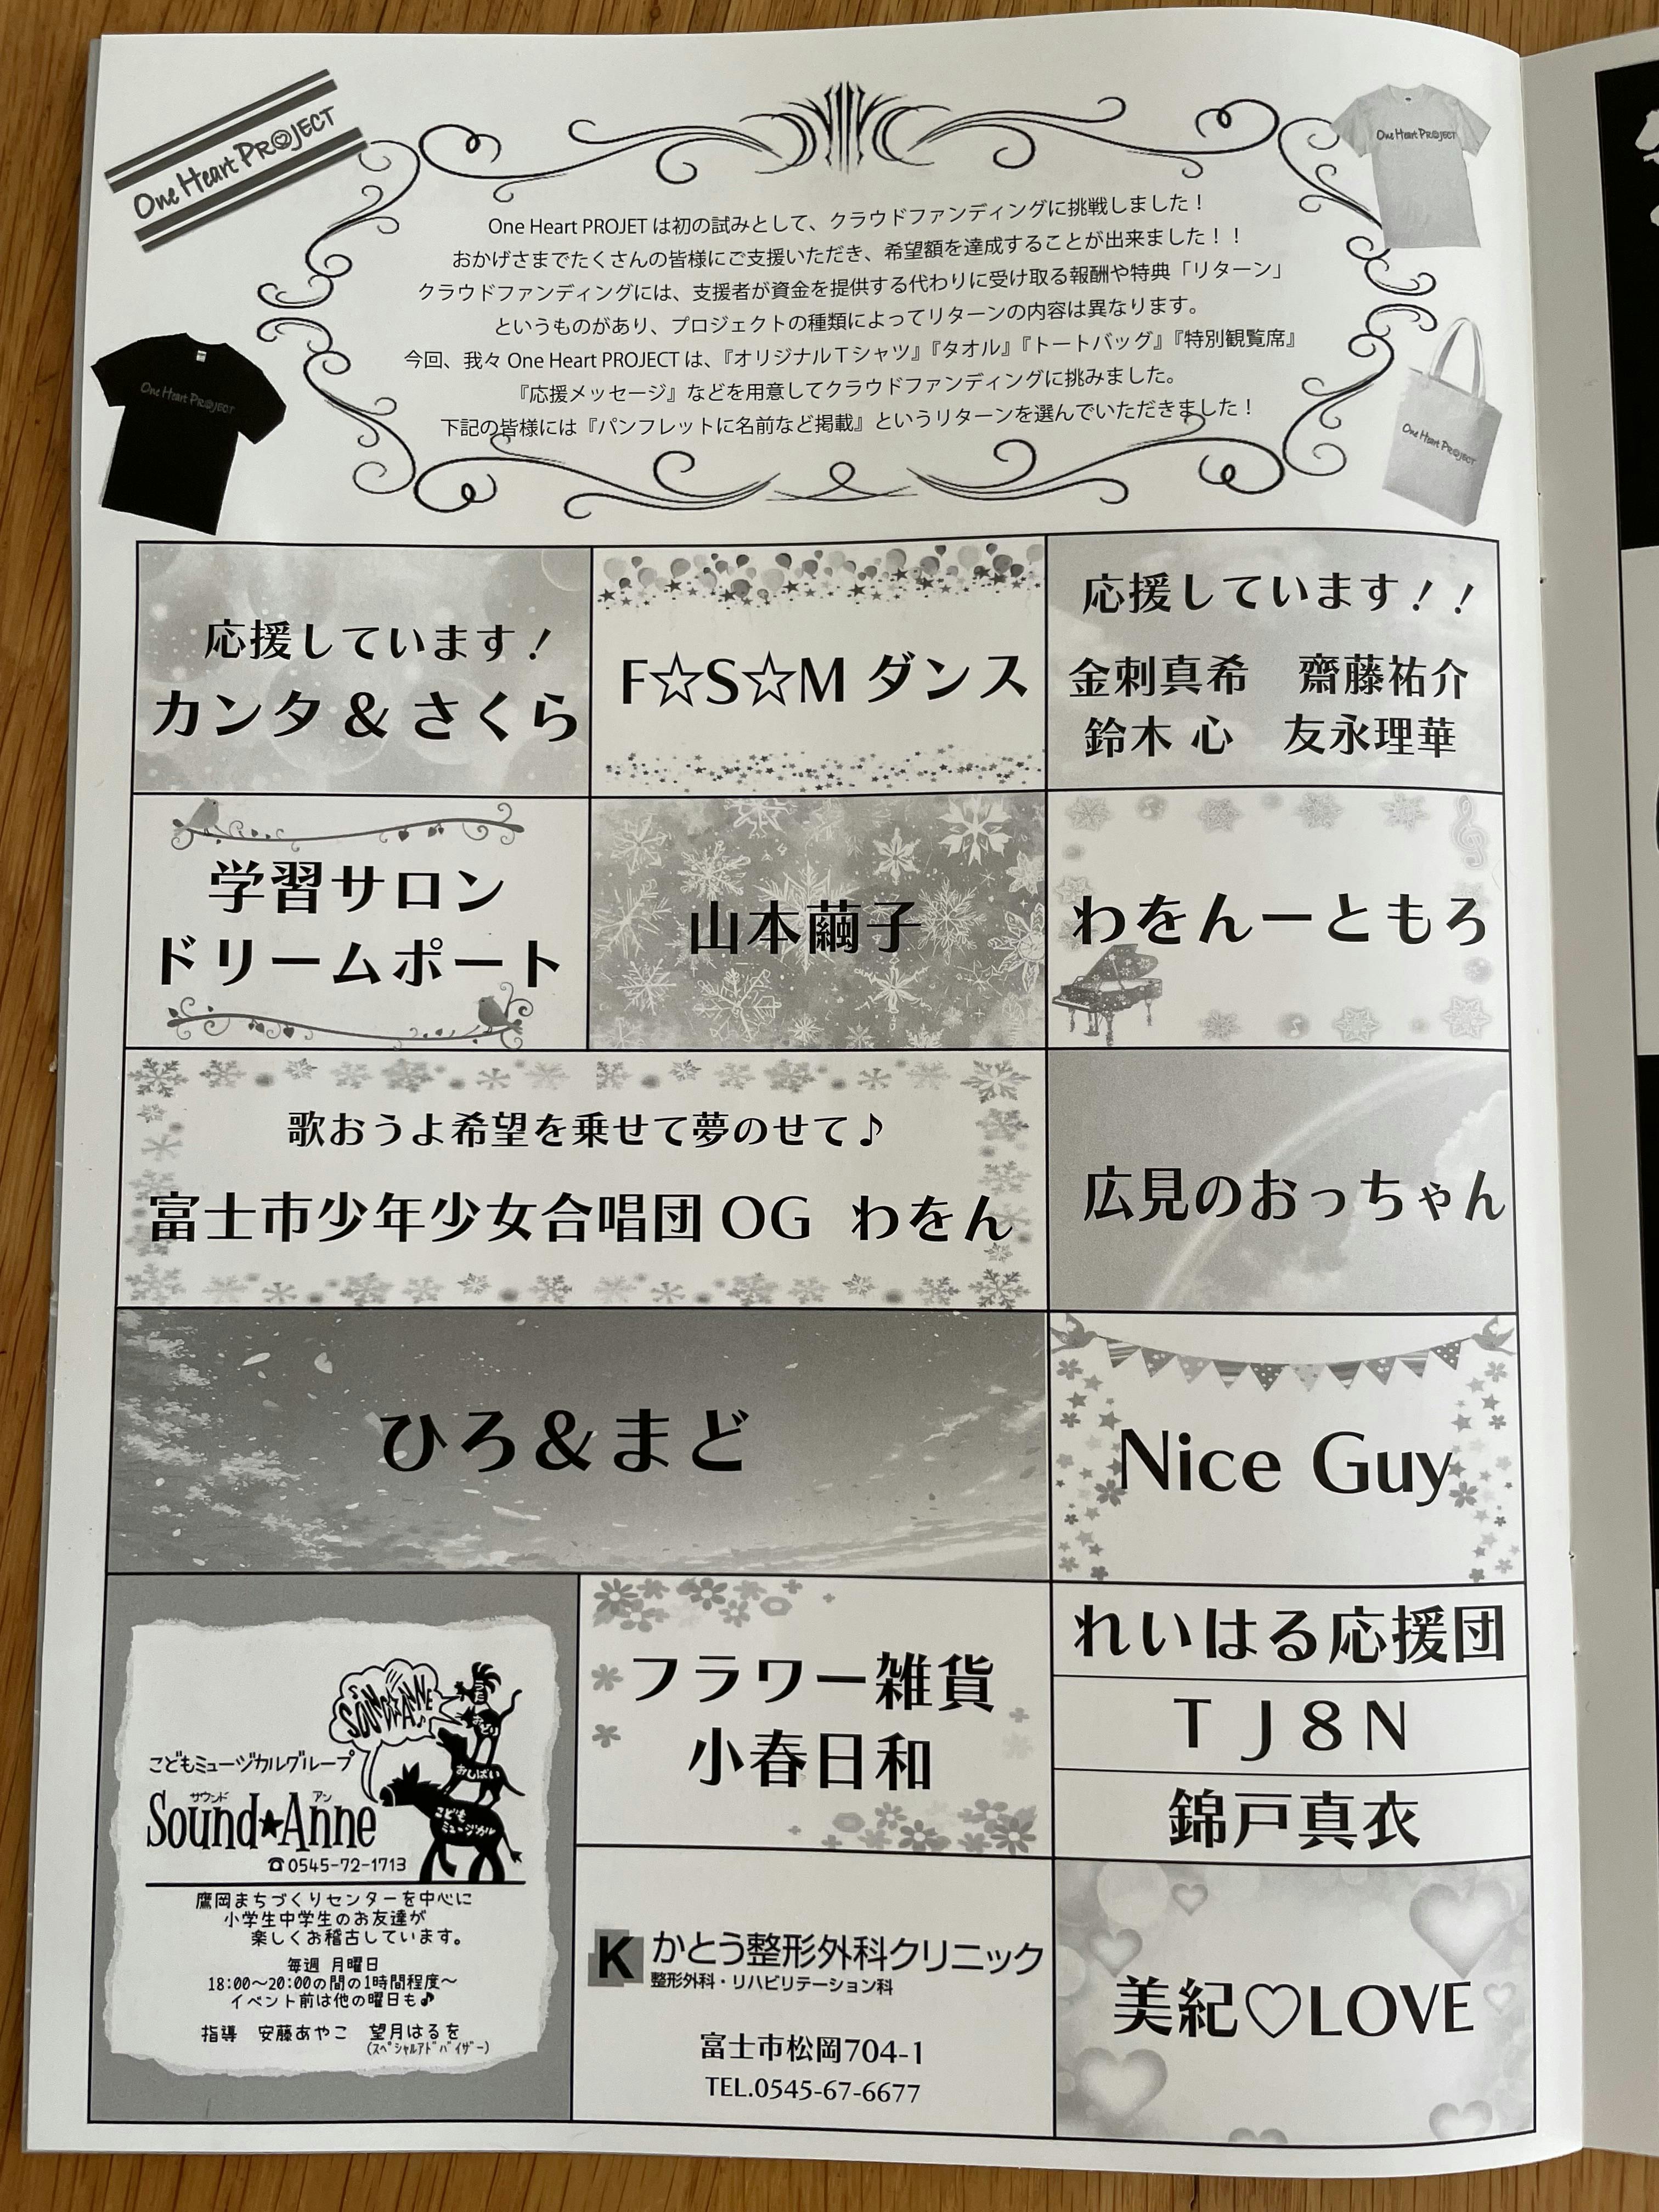 One Heart PROJECT
One Heart PROJECT
One Heart PROJETは初の試みとして、クラウドファンディングに挑戦しました！
おかげさまでたくさんの皆様にご支援いただき、希望額を達成することが出来ました！！
クラウドファンディングには、支援者が資金を提供する代わりに受け取る報酬や特典「リターン」
というものがあり、プロジェクトの種類によってリターンの内容は異なります。
今回、我々 One Heart PROJECTは、『オリジナルTシャツ』『タオル』『トートバッグ』『特別観覧席』
『応援メッセージ』などを用意してクラウドファンディングに挑みました。
下記の皆様には『パンフレットに名前など掲載』というリターンを選んでいただきました！
One Heart PROJECT
One Heart PROJECT
応援しています！
カンタ & さくら
F☆S☆M ダンス
応援しています！！
金刺真希　齋藤祐介
鈴木 心　友永理華
学習サロン
ドリームポート
山本繭子
わをんーともろ
歌おうよ希望を乗せて夢のせて♪
富士市少年少女合唱団 OG わをん
広見のおっちゃん
ひろ＆まど
Nice Guy
SOUND★ANNE
うた
おどり
おしばい
こども
ミュージカル
こどもミュージカルグループ
サウンド アン
Sound★Anne
☎0545-72-1713
鷹岡まちづくりセンターを中心に
小学生中学生のお友達が
楽しくお稽古しています。
毎週 月曜日
18:00〜20:00の間の1時間程度〜
イベント前は他の曜日も♪
指導　安藤あやこ　望月はるを
(スペシャルアドバイザー)
フラワー雑貨
小春日和
れいはる応援団
T J 8 N
錦戸真衣
K かとう整形外科クリニック
整形外科・リハビリテーション科
富士市松岡704-1
TEL.0545-67-6677
美紀♡LOVE